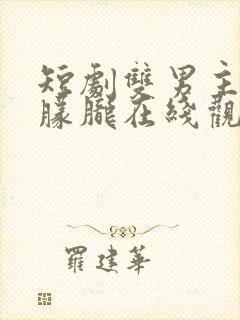 短劇雙男主
朦朧在綫觀
羅建華